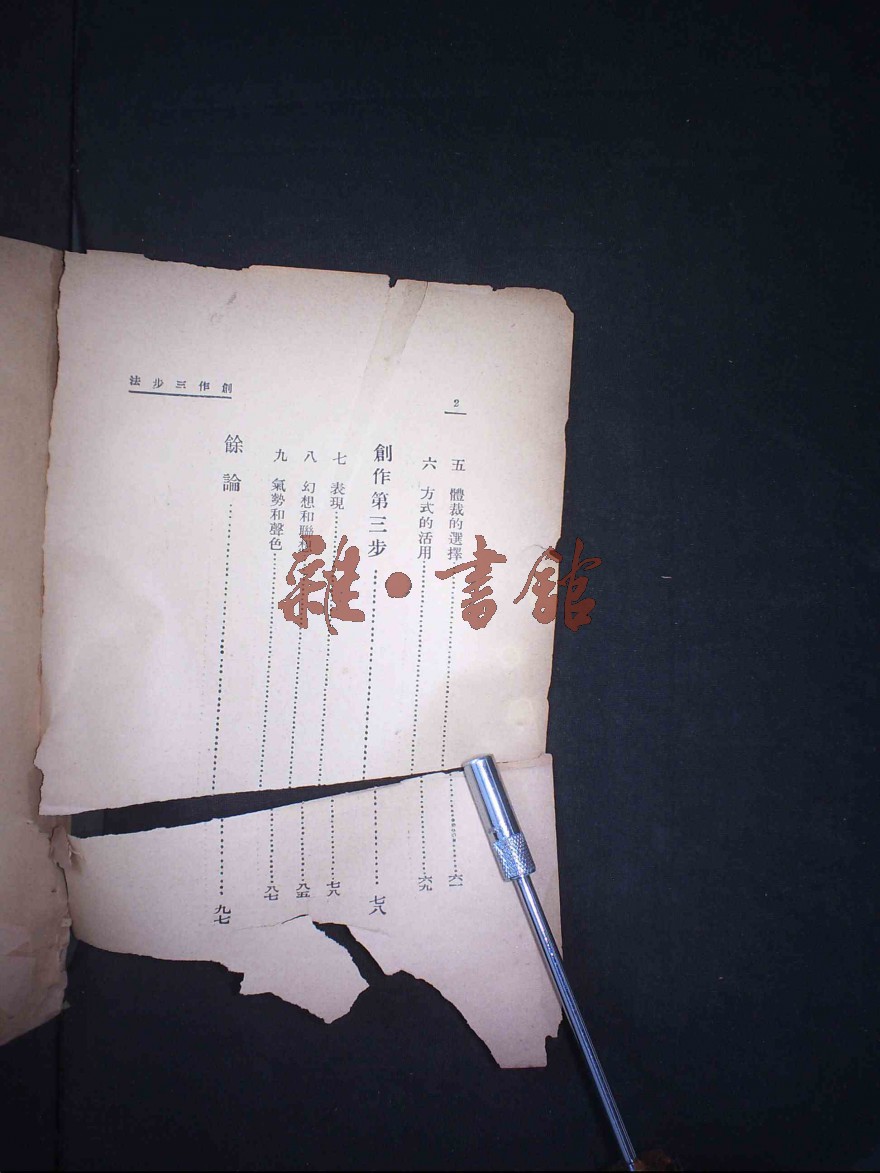 2
創作三步法
五 體裁的選擇……六一
六 方式的活用……六九
創作第三步……七八
七 表現……七八
八 幻想和聯想……八五
九 氣勢和聲色……八七
餘論……九七
雜·書館